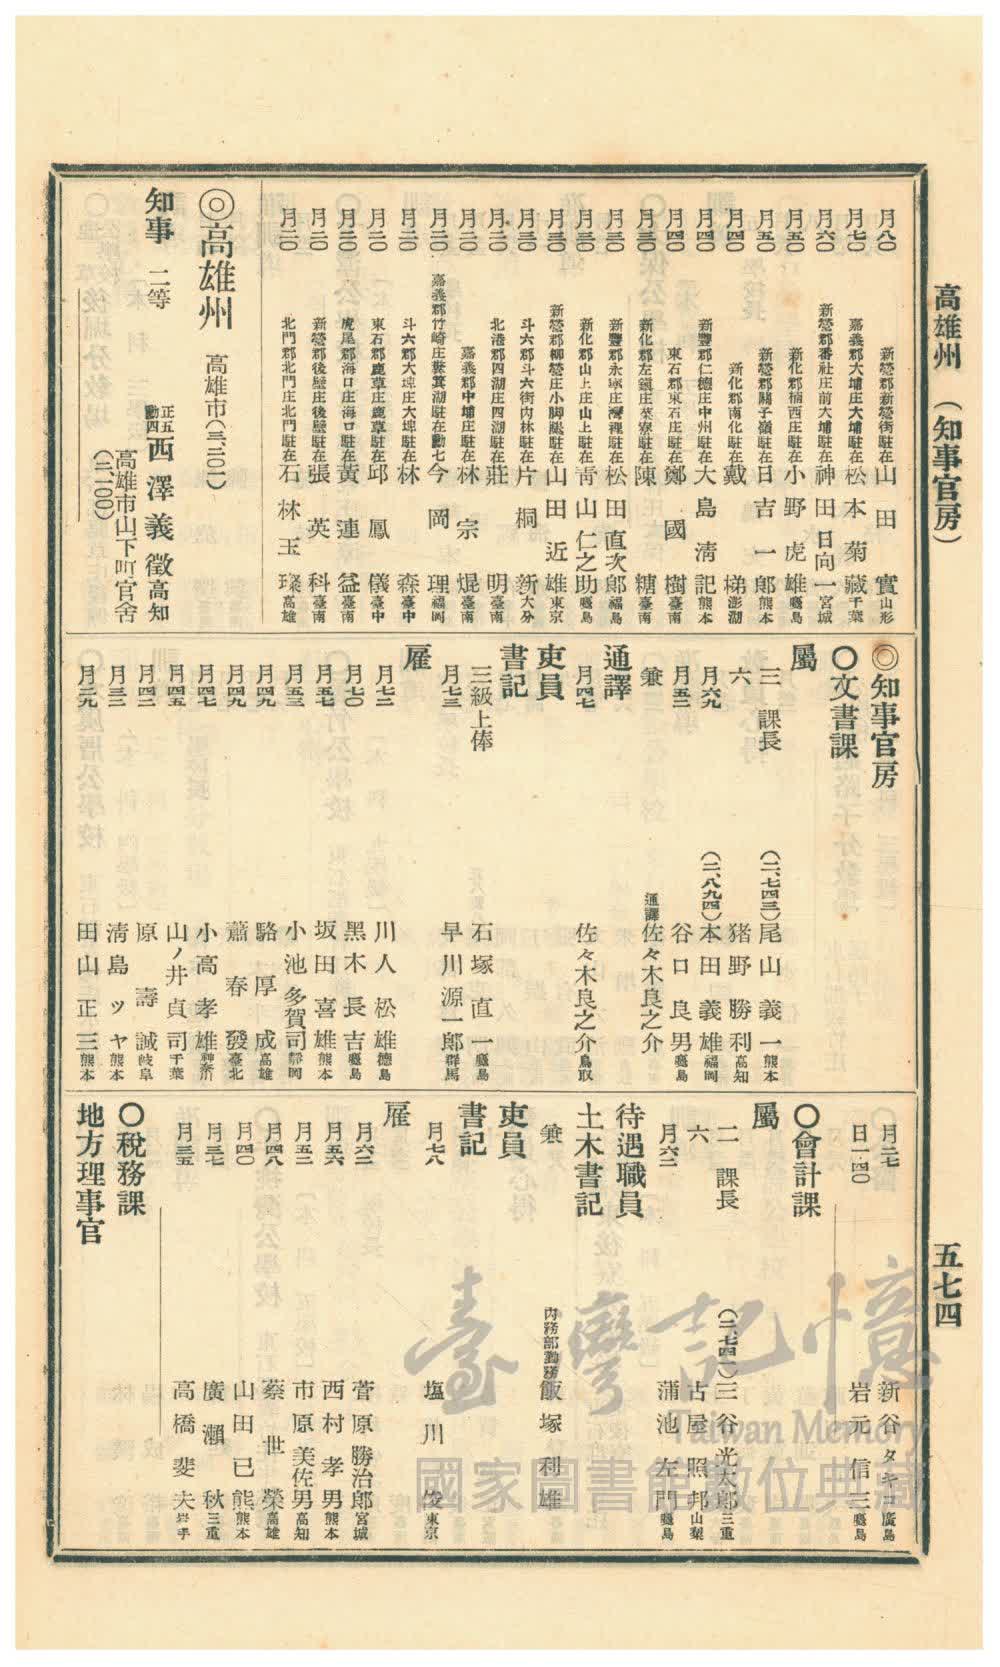 高雄州 (知事官房)
五七四
月八〇 新營郡新營街駐在 山田實 山形
月七〇 嘉義郡大埔庄大埔駐在 松本菊藏 千葉
月六〇 新營郡番社庄前大埔駐在 神田日向一 宮城
月五〇 新化郡楠西庄駐在 小野虎雄 鹿兒島
月五〇 新營郡關子嶺駐在 日吉一郎 熊本
月四〇 新化郡南化駐在 戴梯 澎湖
月四〇 新豐郡仁德庄中州駐在 大島淸記 熊本
月四〇 東石郡東石庄駐在 鄭國樹 臺南
月三〇 新化郡左鎭庄菜寮駐在 陳糖 臺南
月三〇 新豐郡永寧庄灣裡駐在 松田直次郎 福島
月三〇 新化郡山上庄山上駐在 靑山仁之助 鹿兒島
月三〇 新營郡柳營庄小脚腿駐在 山田近雄 東京
月三〇 斗六郡斗六街內林駐在 片桐新 大分
月二〇 北港郡四湖庄四湖駐在 莊明 臺南
月二〇 嘉義郡中埔庄駐在 林宗焜 臺南
月二〇 嘉義郡竹崎庄奮箕湖駐在 勳七 今岡理 福岡
月二〇 斗六郡大埤庄大埤駐在 林森 臺中
月二〇 東石郡鹿草庄鹿草駐在 邱鳳儀 臺中
月二〇 虎尾郡海口庄海口駐在 黃連益 臺南
月二〇 新營郡後壁庄後壁駐在 張英科 臺南
月二〇 北門郡北門庄北門駐在 石林玉璨 高雄
◎高雄州 高雄市(三、二〇一)
知事 二等 正五勳四 西澤義徵 高知
高雄市山下町官舍
(三、一〇〇)
◎知事官房
〇文書課
屬
三 課長 (二、七四三) 尾山義一 熊本
六 猪野勝利 高知
月六九 (二、八九四) 本田義雄 福岡
月五二 谷口良男 鹿兒島
兼 通譯 佐々木良之介
通譯
月四七 佐々木良之介 鳥取
吏員
書記
三級上俸 石塚直一 鹿兒島
月七三 早川源一郎 群馬
雇
月七二 川人松雄 德島
月七〇 黑木長吉 鹿兒島
月五七 坂田喜雄 熊本
月五三 小池多賀司 靜岡
月四九 駱厚成 高雄
月四九 蕭春發 臺北
月四七 小高孝雄 神奈川
月四五 山ノ井貞司 千葉
月四二 原壽誠 岐阜
月三三 淸島ツヤ 熊本
月二九 田山正三 熊本
月二七 新谷タキコ 廣島
日一・四〇 岩元信三 鹿兒島
〇會計課
屬
二 課長 (二、七四一) 三谷光太郎 三重
六 古屋照邦 山梨
月六二 蒲池左門 鹿兒島
待遇職員
土木書記
兼 內務部勤務 飯塚利雄
吏員
書記
月七八 塩川俊 東京
雇
月六二 菅原勝治郎 宮城
月五六 西村孝男 熊本
月五二 市原美佐男 高知
月四八 蔡世榮 高雄
月四〇 山田已熊 熊本
月三七 廣瀨秋 三重
月三五 高橋斐夫 岩手
〇稅務課
地方理事官
臺灣記憶
Taiwan Memory
國家圖書館數位典藏